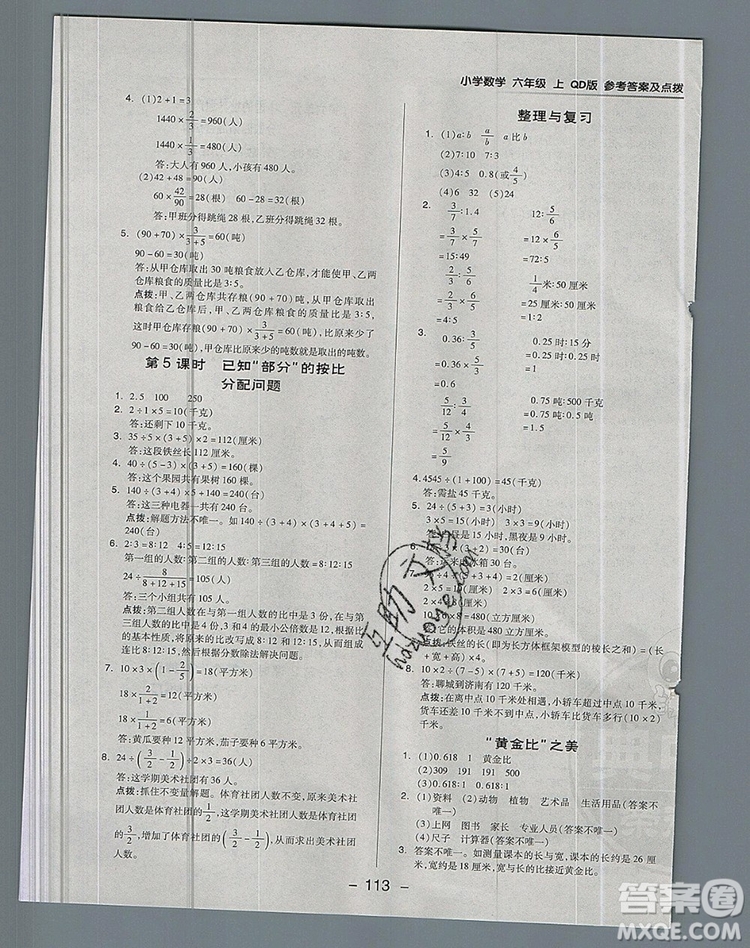 小学数学 六年级 上 QD版 参考答案及点拨
4. (1)2+1=3
1440×2/(1+2)=960(人)
1440×1/(1+2)=480(人)
答:大人有 960 人,小孩有 480 人。
(2)42+48=90(人)
60×42/90=28(根) 60-28=32(根)
答:甲班分得跳绳 28 根,乙班分得跳绳 32 根。
5. (90+70)×3/(3+5)=60(吨)
90-60=30(吨)
答:从甲仓库取出 30 吨粮食放入乙仓库,才能使甲、乙两
仓库粮食的质量比是 3:5。
点拨:甲、乙两仓库共存粮(90+70)吨,当甲、乙两仓库
粮食的质量比是 3:5 时,
这时甲仓库存粮(90+70)×3/(3+5)=60(吨),比原来少了
90-60=30(吨),甲仓库比原来少的吨数就是取出的吨数。
第 5 课时 已知“部分”的按比
分配问题
1. 2.5 100 250
2. 2÷1×5=10(千克)
答:还剩下 10 千克。
3. 35÷5×(3+5)×2=112(厘米)
答:这根铁丝长 112 厘米。
4. 40÷(5-3)×(3+5)=160(棵)
答:这个果园共有果树 160 棵。
5. 140÷(3+4)×(3+4+5)=240(台)
答:这三种电器一共有 240 台。
点拨:解题方法不唯一。如 140÷(3+4)×5+140=
240(台)
6. 2:3=8:12 4:5=12:15
第一组的人数:第二组的人数:第三组的人数=8:12:15
24÷8/(8+12+15)=105(人)
答:三个小组共有 105 人。
点拨:第二组人数在与第一组人数的比中是 3 份,在与第
三组人数的比中是 4 份,3 和 4 的最小公倍数是 12,根据比
的基本性质,将原来的比改写成 8:12 和 12:15,再写成
连比 8:12:15,最后根据分数除法解决问题。
7. 10×3×(1-2/5)=18(平方米)
18×2/(1+2)=12(平方米)
18×1/(1+2)=6(平方米)
答:黄瓜要种 12 平方米,茄子要种 6 平方米。
8. 24÷(3/2-1/2)÷2×3=36(人)
答:这学期美术社团有 36 人。
点拨:抓住不变量解题。体育社团人数不变,原来美术社
团人数是体育社团的1/2,这学期美术社团人数是体育社团
的3/2,增加了体育社团的(3/2-1/2),由此可求出体育社团
人数。
整理与复习
1. (1)a:b a/b a比b
(2)7:10 7:3
(3)40 0.8(或4/5)
(4)6 32 (5)24
2. 3/7:1.4 12:5/6
=3/7×5/7 =12×6/5
=15:49 =72:5
2/3:5/6 1/4米:50 厘米
=2/3×6/5 =25 厘米:50 厘米
=4:5 =1:2
3. 0.36:1/2 0.25 时:15 分
=0.36×2 =0.25 时:0.25 时
=0.72 =1
1/3:3/5 0.75 吨:500 千克
=1/3×5/3 =0.75 吨:0.5 吨
=5/9 =1.5
4. 4545÷(1+100)=45(千克)
答:需盐 45 千克。
5. 24÷(5+3)=3(小时)
3×5=15(小时) 3×3=9(小时)
答:白昼是15小时,黑夜是 9 小时。
2×5=10(厘米) 2×3=6(厘米)
点拨:铁丝的长(即为长方体框架模型的棱长之和)=(长
+宽+高)×4。
8. 10×2÷(7-5)×(7+5)=120(千米)
答:聊城到济南有 120 千米。
点拨:两车在离中点 10 千米处相遇,小轿车超过中点 10 千
米,货车离中点 10 千米,小轿车比货车多行了(10×2)
千米。
“黄金比”之美
1. (1)0.618 1 黄金比
(2)309 191 500
(3)0.618:1
2. (1)资料 (2)动物 植物 艺术品 生活用品(答案不
唯一)
(3)上网 图书 家长 专业人员(答案不唯一)
(4)尺子 计算器(答案不唯一)
3. 答案不唯一。如测量课本的长与宽,课本的长约是 26 厘
米,宽约是 18 厘米,宽与长的比接近黄金比。
- 113 -
互助文档
答案圈
MXQE.COM